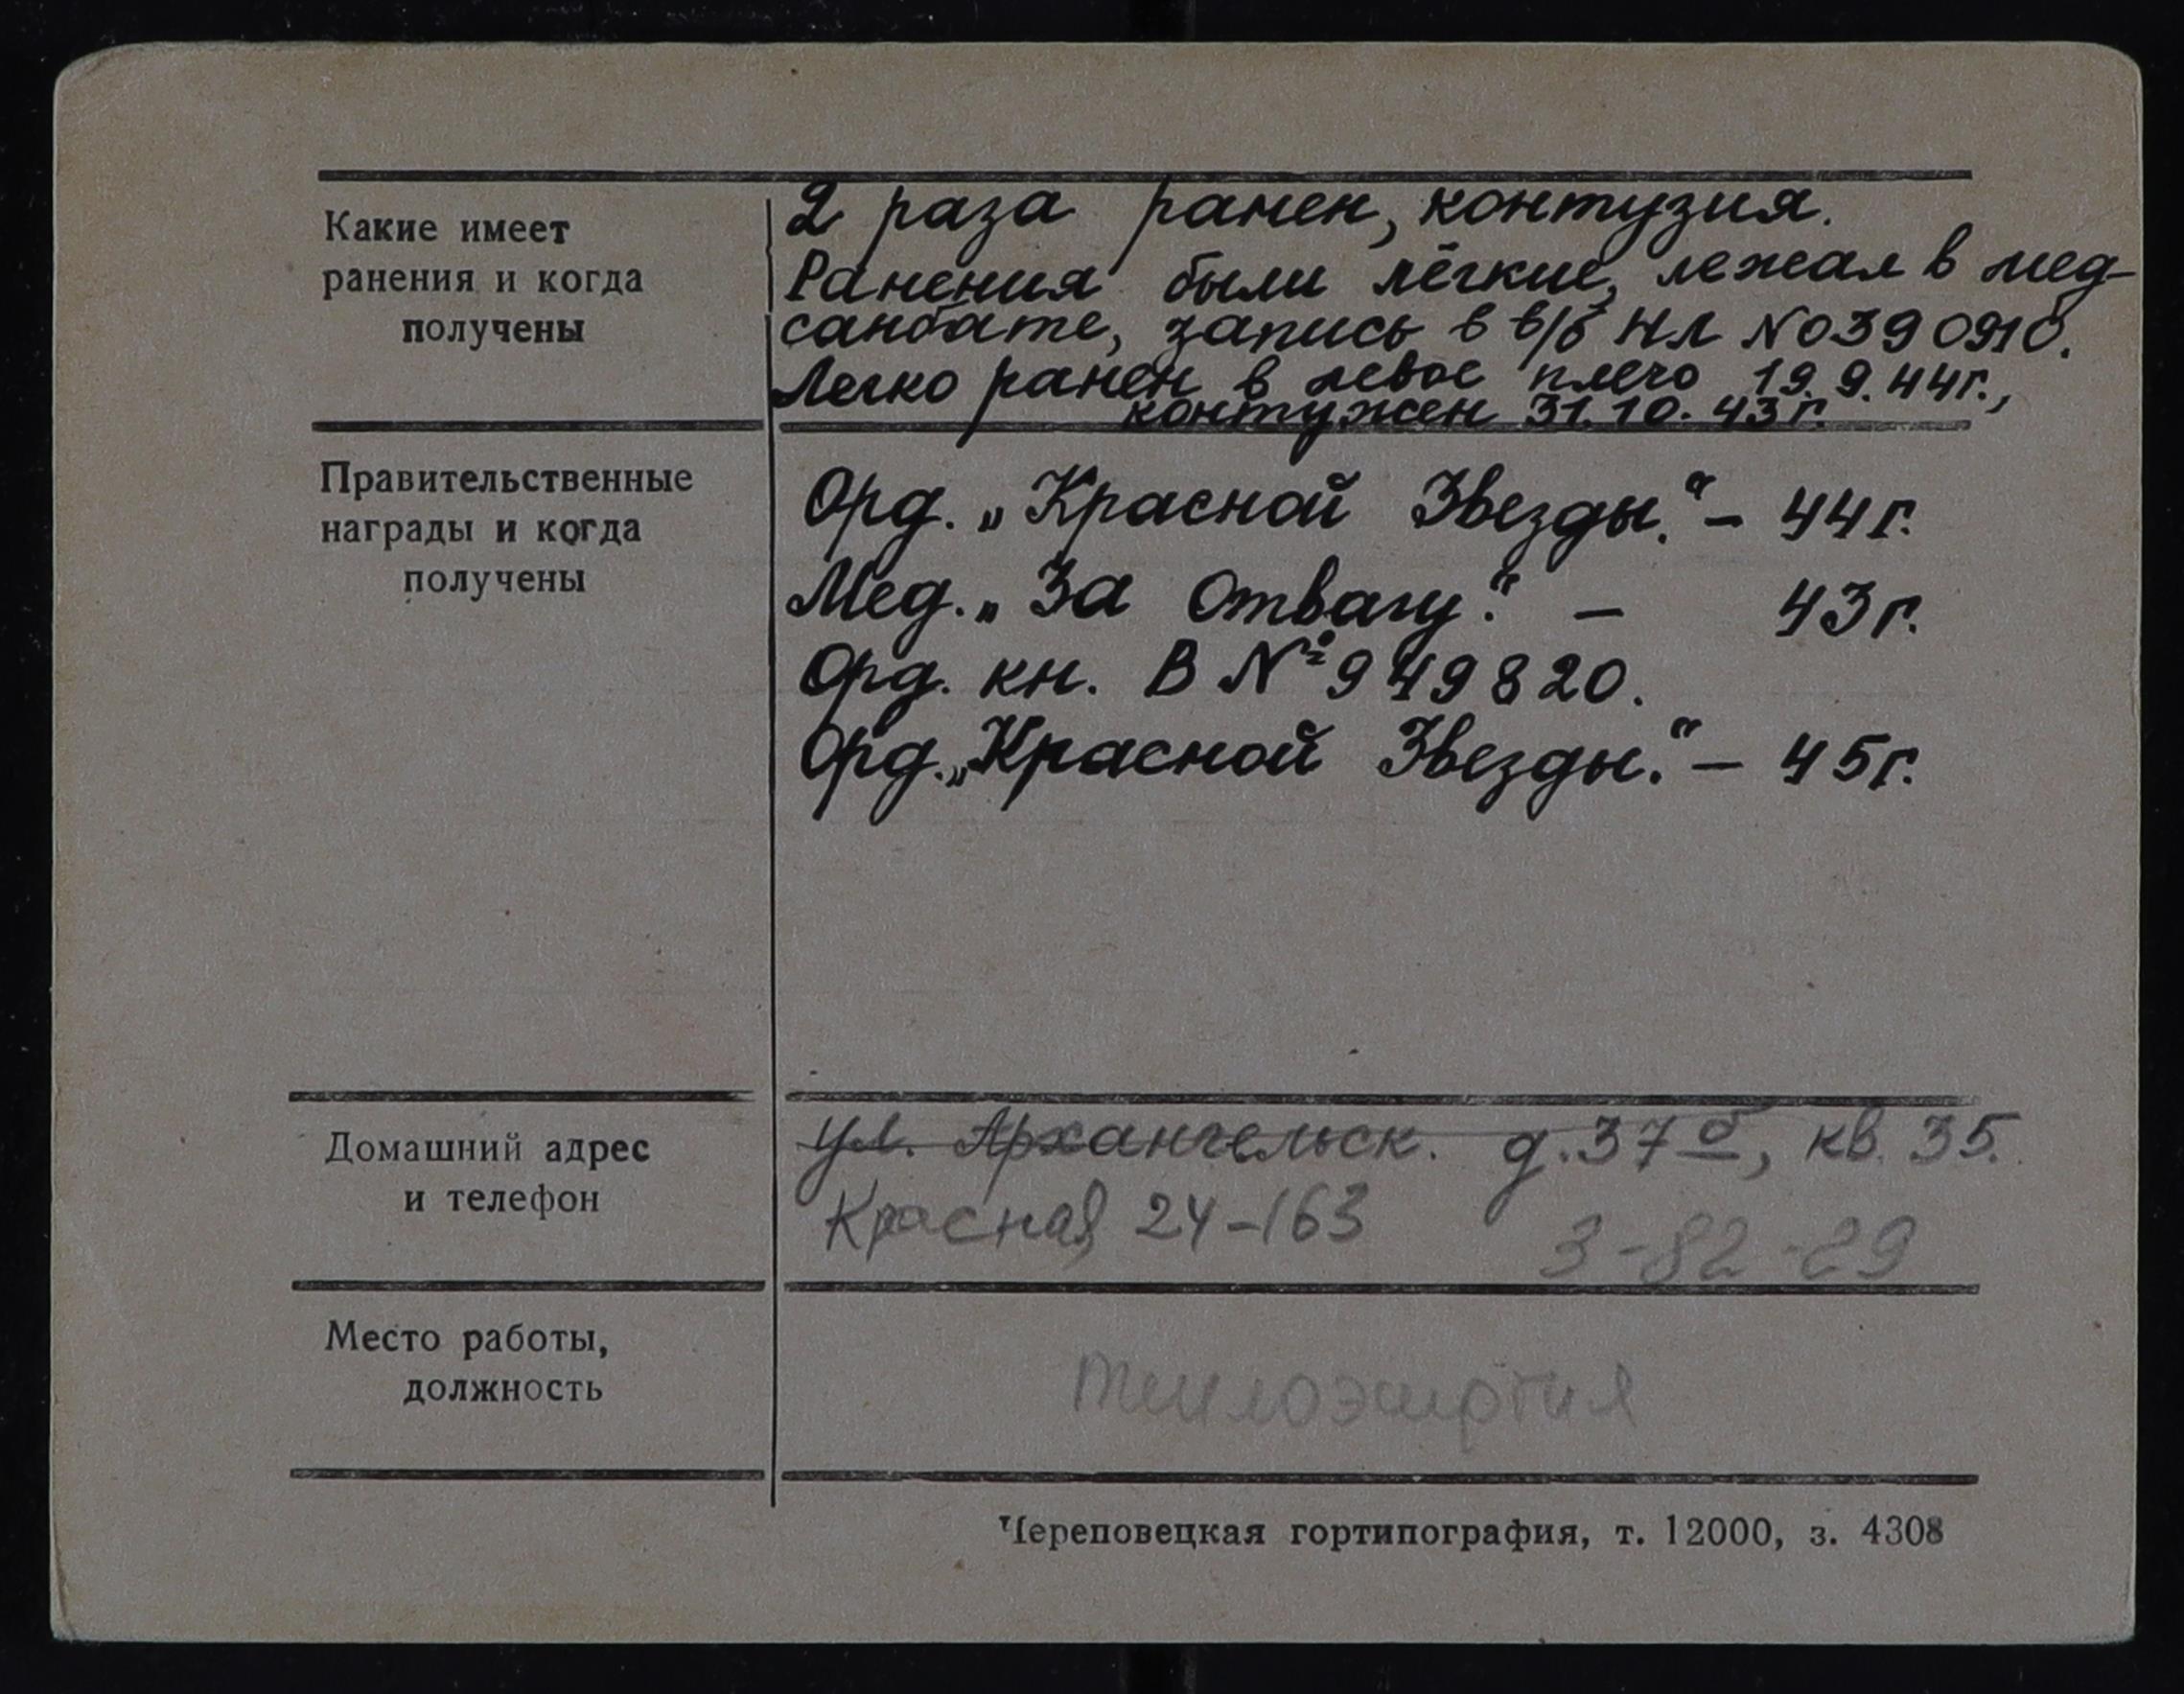 Какие имеет
ранения и когда
получены
2 раза ранен, контузия.
Ранения были лёгкие, лежал в мед-
санбате, запись в в/б НЛ №0390910.
Легко ранен в левое плечо 19.9.44г.,
контужен 31.10.43г.
Правительственные
награды и когда
получены
Орд. „Красной Звезды.“ – 44г.
Мед. „За Отвагу.“ – 43г.
Орд. кн. В №949820.
Орд. „Красной Звезды.“ – 45г.
Домашний адрес
и телефон
ул. Архангельск. д.37б, кв. 35.
Красная 24-163 3-82-29
Место работы,
должность
теплоэнергия
Череповецкая гортипография, т. 12000, з. 4308